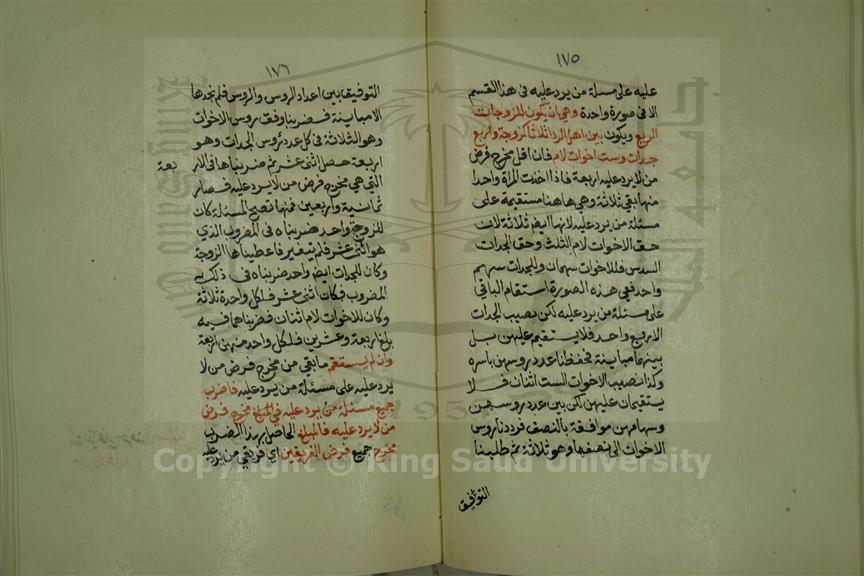 ١٧٥
عليه على مسئلة من يرد عليه في هذا القسم
الا في صورة واحدة وهي ان يكون للزوجات
الربع ويكون بين اهل الرد اثلاثا كزوجة واربع
جدات وست اخوات لام فان اقل مخرج فرض
من لا يرد عليه اربعة فاذا اخذت المراة واحدا
منها بقي ثلاثة وهي هاهنا مستقيمة على
مسئلة من يرد عليه لانها ايضا ثلاثة لان
حق الاخوات لام الثلث وحق الجدات
السدس فللاخوات سهمان وللجدات سهم
واحد ففي هذه الصورة استقام الباقي
على مسئلة من يرد عليه لكن نصيب الجدات
الاربع واحد فلا يستقيم عليهن بل
بينهما مباينة فحفظنا عدد روسهن باسره
وكذا نصيب الاخوات الست اثنان فلا
يستقيمان عليهن لكن بين عدد روسهن
وسهامهن موافقة بالنصف فرددنا روس
الاخوات الى نصفها وهو ثلاثة ثم طلبنا
التوفيق
١٧٦
التوفيق بين اعداد الروس والروس فلم نجدها
الا مباينة فضربنا وفق روس الاخوات
وهو الثلاثة في كل عدد رؤس الجدات وهو
اربعة حصل اثنى عشر ثم ضربناها في الار
بعة
التي هي مخرج فرض من لا يرد عليه فصار
ثمانية واربعين فمنها تصح المسئلة كان
للزوجة واحد ضربناه في المضروب الذي
هو اثنى عشر فلم يتغير فاعطيناها الزوجة
وكان للجدات ايضا واحد ضربناه في ذلك
المضروب فكان اثنى عشر فلكل واحدة ثلاثة
وكان للاخوات لام اثنان فضربناهما فيه
بلغ اربعة وعشرين فلكل واحد منهن اربعة
وان لم يستقم ما بقي من مخرج فرض من لا
يرد عليه على مسئلة من يرد عليه فاضرب
جميع مسئلة من يرد عليه في مخرج فرض
من لا يرد عليه فالمبلغ الحاصل بهذا الضرب
مخرج جميع فرض الفريقين اي فريقي من يرد عليه
Copyright © King Saud University